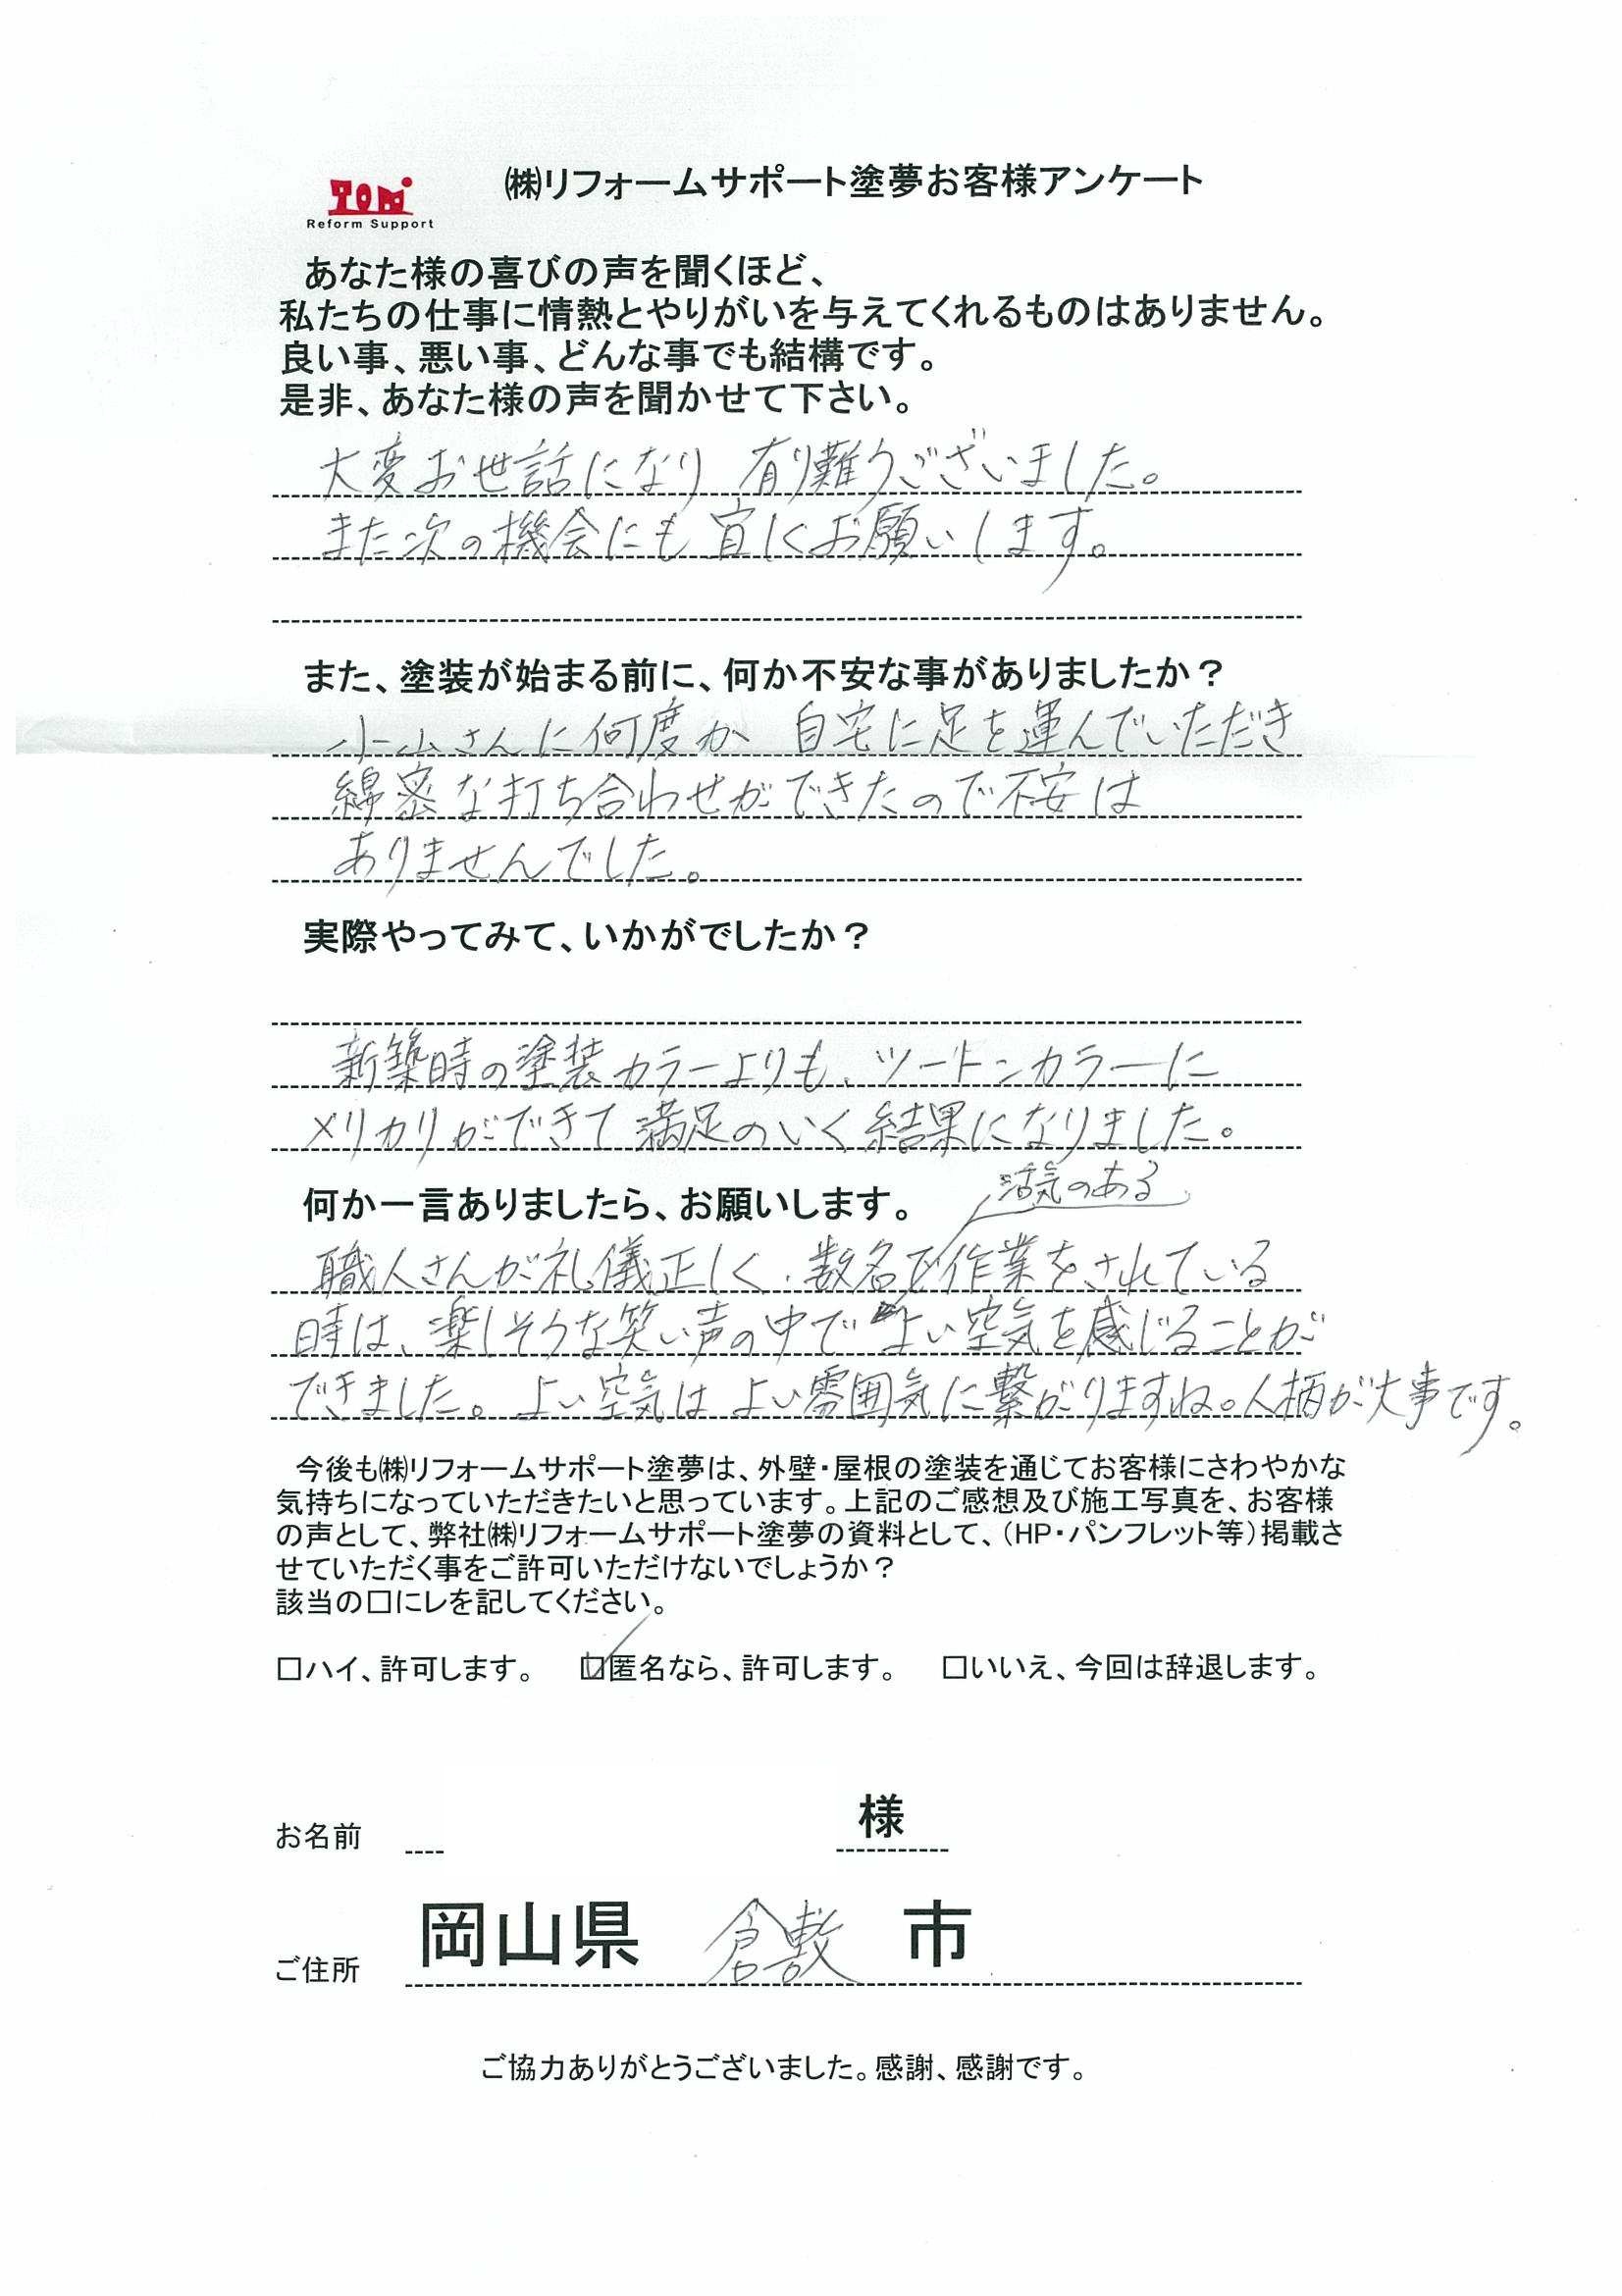 TOM
Reform Support
㈱リフォームサポート塗夢お客様アンケート
あなた様の喜びの声を聞くほど、
私たちの仕事に情熱とやりがいを与えてくれるものはありません。
良い事、悪い事、どんな事でも結構です。
是非、あなた様の声を聞かせて下さい。
大変お世話になり 有り難うございました。
また次の機会にも宜しくお願いします。
また、塗装が始まる前に、何か不安な事がありましたか？
小山さんに何度か 自宅に足を運んでいただき
綿密な打ち合わせができたので不安は
ありませんでした。
実際やってみて、いかがでしたか？
新築時の塗装カラーよりも、ツートンカラーに
メリカリができて満足のいく結果になりました。
何か一言ありましたら、お願いします。
活気のある
職人さんが礼儀正しく、数名で作業をされている
時は、楽しそうな笑い声の中で よい空気を感じることが
できました。よい空気は よい雰囲気に繋がりますね。人柄が大事です。
今後も㈱リフォームサポート塗夢は、外壁・屋根の塗装を通じてお客様にさわやかな
気持ちになっていただきたいと思っています。上記のご感想及び施工写真を、お客様
の声として、弊社㈱リフォームサポート塗夢の資料として、（HP・パンフレット等）掲載さ
せていただく事をご許可いただけないでしょうか？
該当の□にレを記してください。
□ハイ、許可します。 ☑匿名なら、許可します。 □いいえ、今回は辞退します。
お名前 様
ご住所 岡山県 倉敷 市
ご協力ありがとうございました。感謝、感謝です。